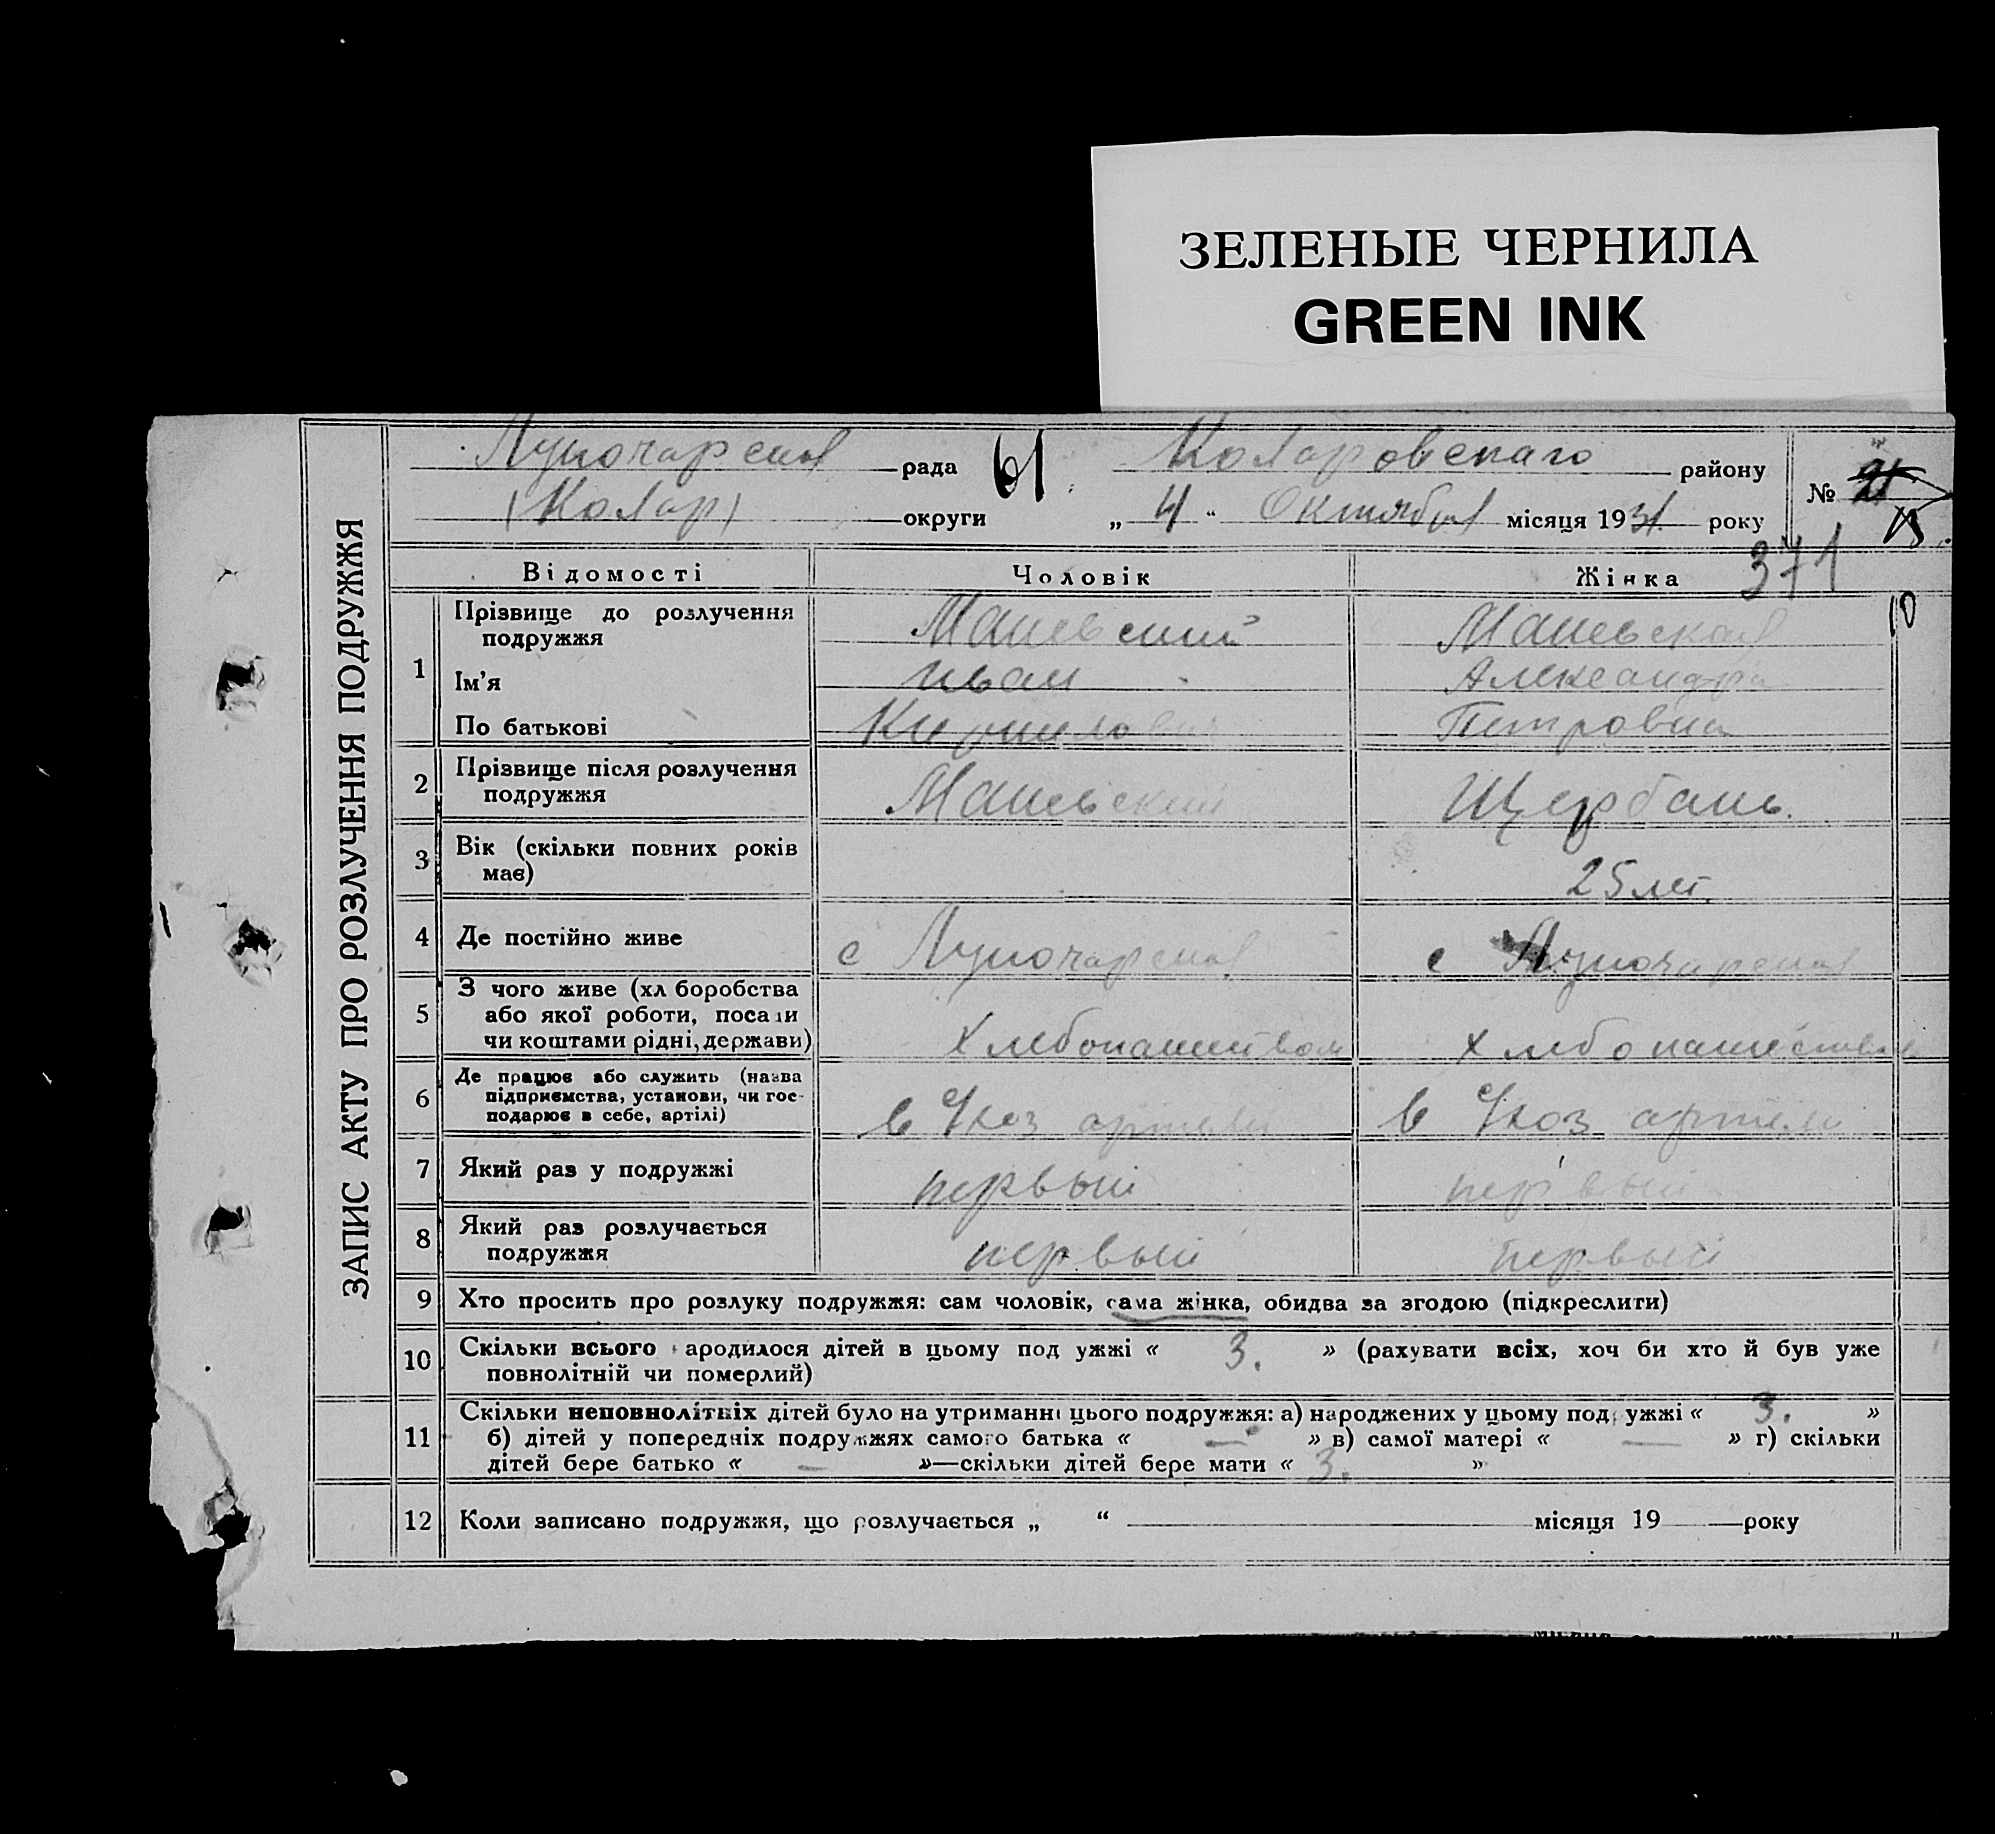 ЗЕЛЕНЫЕ ЧЕРНИЛА
GREEN INK
ЗАПИС АКТУ ПРО РОЗЛУЧЕННЯ ПОДРУЖЖЯ
Луночарская рада 61 Коларовскаго району №
(Колар) округи „ 4 “ Октября місяця 1931 року 13
371
Відомості Чоловік Жінка
10
1 Прізвище до розлучення подружжя Маневский Маневская
Ім’я Иван Александра
По батькові Кирилович Петровна
2 Прізвище після розлучення подружжя Маневский Щербань.
3 Вік (скільки повних років має) 25 лет.
4 Де постійно живе с Луночарская с Луночарская
5 З чого живе (хл боробства
або якої роботи, посади
чи коштами рідні, держави) Хлебопашеством хлебопашеством
6 Де працює або служить (назва
підприємства, установи, чи гос-
подарює в себе, артілі) в артели в артели
7 Який раз у подружжі первый первый
8 Який раз розлучається
подружжя первый первый
9 Хто просить про розлуку подружжя: сам чоловік, сама жінка, обидва за згодою (підкреслити)
10 Скільки всього ародилося дітей в цьому под ужжі « 3. » (рахувати всіх, хоч би хто й був уже
повнолітній чи померлий)
11 Скільки неповнолітніх дітей було на утриманні цього подружжя: а) народжених у цьому под ужжі « 3. »
б) дітей у попередніх подружжях самого батька « — » в) самої матері « — » г) скільки
дітей бере батько « — »—скільки дітей бере мати « 3. »
12 Коли записано подружжя, що розлучається „ “ місяця 19 року